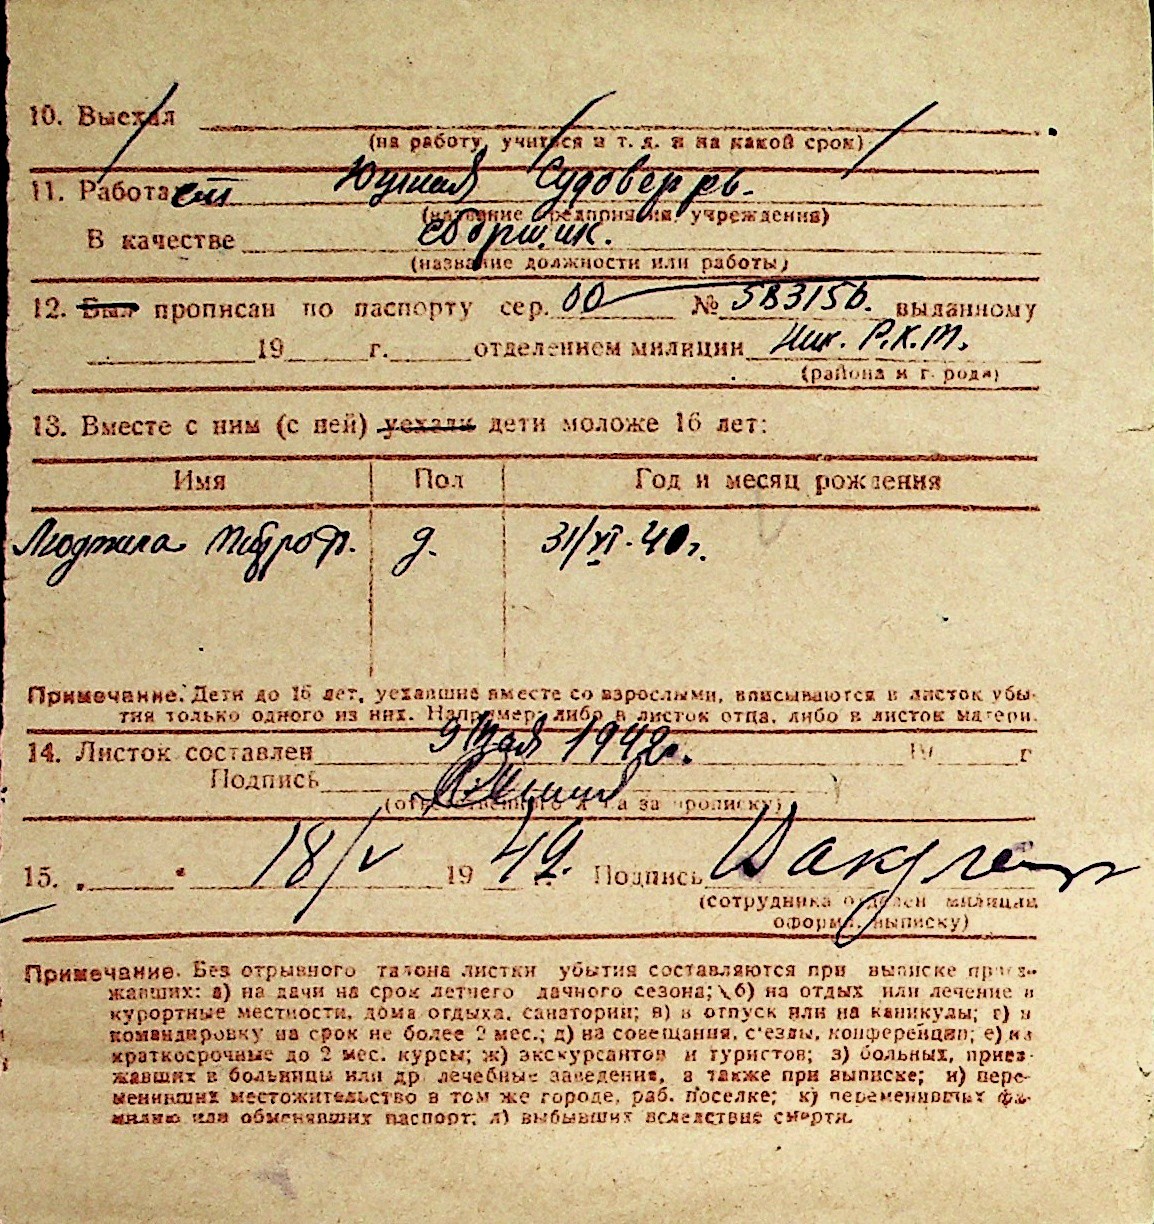 10. Выехал
(на работу, учиться и т. д. и на какой срок)
11. Работает Южная Судоверфь.
(название предприятия, учреждения)
В качестве сборщик.
(название должности или работы)
12. Был прописан по паспорту сер. 00 № 583156. выданному
19 г. отделением милиции Ник. Р.К.М.
(района и города)
13. Вместе с ним (с ней) уехали дети моложе 16 лет:
Имя Пол Год и месяц рождения
Людмила Митроф. д. 31/VI-40г.
Примечание. Дети до 16 лет, уехавшие вместе со взрослыми, вписываются в листок убы-
тия только одного из них. Например: либо в листок отца, либо в листок матери.
14. Листок составлен 9 мая 1942г. 19 г
Подпись
(ответственного лица за прописку)
15. „ “ 18/V 19 42. Подпись
(сотрудника отделен милиции
оформ. выписку)
Примечание. Без отрывного талона листки убытия составляются при выписке приез-
жавших: а) на дачи на срок летнего дачного сезона; б) на отдых или лечение в
курортные местности, дома отдыха, санатории; в) в отпуск или на каникулы; г) в
командировку на срок не более 2 мес.; д) на совещания, с'езды, конференции; е) на
краткосрочные до 2 мес. курсы; ж) экскурсантов и туристов; з) больных, приез-
жавших в больницы или др лечебные заведения, а также при выписке; и) пере-
менивших местожительство в том же городе, раб. поселке; к) переменивших фа-
милию или обменявших паспорт; л) выбывших вследствие смерти.